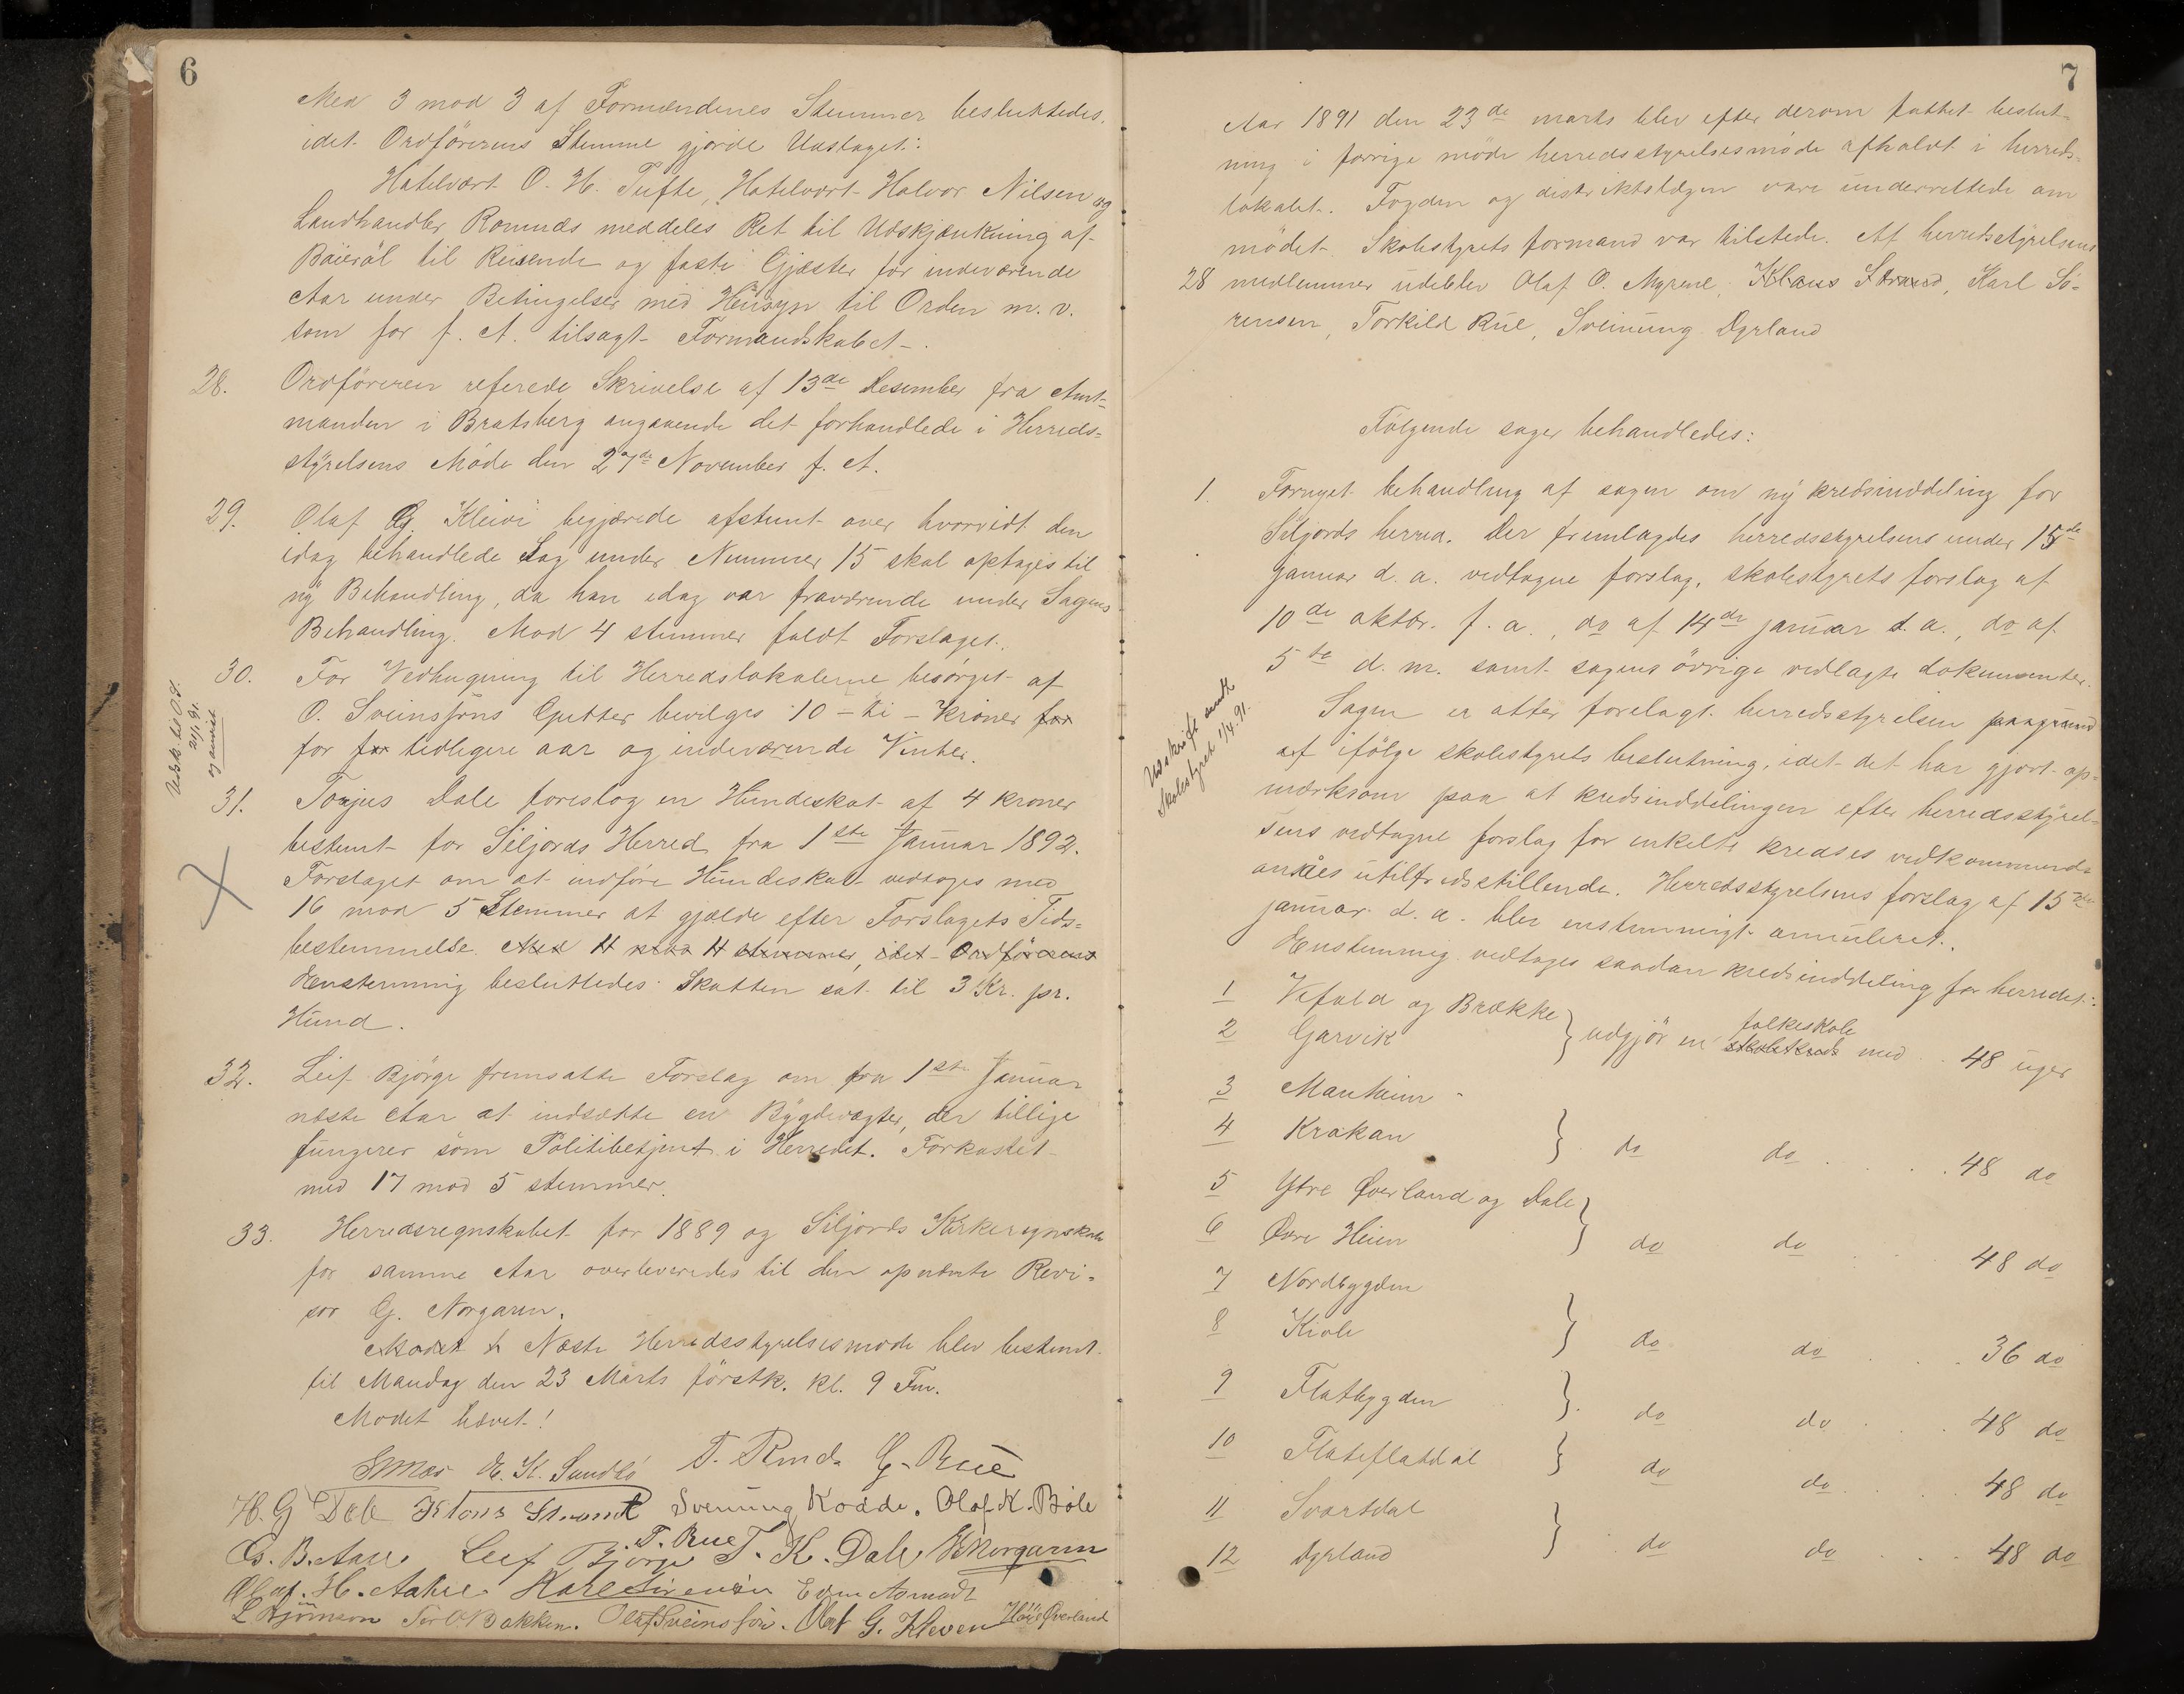 6
Med 3 mod 3 af Formændenes Stemmer besluttedes,
idet Ordförerens Stemme gjorde Udslaget:
Hotelvært O. H. Tufte, Hotelvært Halvor Nilsen og
Landhandler Romnæs meddeles Ret til Udskjænkning af
Baieröl til Reisende og faste Gjæster for indeværende
Aar under Betingelser med Hensyn til Orden m. v.
som for f. A. tilsagt Formandskabet.
28. Ordföreren referede Skrivelse af 13de Desember fra Amt-
manden i Bratsberg angaaende det forhandlede i Herreds-
styrelsens Möde den 27de November f. A.
29. Olaf G. Kleivi begjærede afstemt over hvorvidt den
idag behandlede Sag under Nummer 15 skal optages til
ny Behandling, da han idag var fraværende under Sagens
Behandling. Mod 4 stemmer faldt Forslaget.
30. For Vedhugning til Herredslokalerne besörget af
O. Sveinsföns Gutter bevilges 10 - ti - Kroner for
for for tidligere aar og indeværende Vinter.
Udsk. til O.S.
21/3 91.
og sendt
31. Torjus Dale foreslog en Hundeskat af 4 kroner
bestemt for Siljords Herred fra 1ste Januar 1892.
Forslaget om at indföre Hundeskat vedtoges med
16 mod 5 Stemmer at gjælde efter Forslagets Tids-
bestemmelse. Med 11 mod 11 stemmer, idet Ordförerens
Enstemmig besluttedes Skatten sat til 3 Kr. pr.
Hund.
32. Leif Björge fremsatte Forslag om fra 1ste Januar
næste Aar at indsætte en Bygdevægter, der tillige
fungerer som Politibetjent i Herredet. Forkastet
med 17 mod 5 stemmer.
33. Herredsregnskabet for 1889 og Siljords Kirkeregnskab
for samme Aar overleveredes til den opnævnte Revi-
sor G. Norgaren.
Mödet h Næste Herredsstyrelsesmöde blev bestemt
til Mandag den 23 Marts förstk. kl. 9 Fm.
Mödet hævet!
E. K. Sundbö T. Rmd. G. Rue
H. G. Dale Klaus Strand Svenung Kodde. Olaf K. Böle
G. B. Aase Leif Björge T. Rue T. K. Dale Norgaren
Olaf H. Aakre Karl Sörensen Even Aamodt
L Björnson Tor O Bakken. Olaf Sveinsfön. Olaf G. Kleven Høie Øverland
7
Aar 1891 den 23de marts blev efter derom fattet beslut-
ning i forrige möde herredsstyrelsesmöde afholdt i herreds-
lokalet. Fogden og distriktslægen vare underrettede om
mödet. Skolestyrets formand var tilstede. Af herredsstyrelsens
28 medlemmer udeblev Olaf O. Myrene, Klaus Strand, Karl Sö-
rensen, Torkild Rue, Sveinung Dyrland
Fölgende sager behandledes:
1. Fornyet behandling af sagen om ny kredsinddeling for
Siljords herred. Der fremlagdes herredsstyrelsens under 15de
januar d. a. vedtagne forslag, skolestyrets forslag af
10de oktbr. f. a., do af 14de januar d. a., do af
5te d. m. samt sagens övrige vedlagte dokumenter.
Udskrift sendt
Skolestyret 1/4. 91.
Sagen er atter forelagt herredsstyrelsen paagrund
af ifölge skolestyrets beslutning, idet det har gjort op-
mærksom paa at kredsinddelingen efter herredsstyrel-
sens vedtagne forslag for enkelte kredses vedkommende
ansees utilfredsstillende. Herredsstyrelsens forslag af 15de
januar d. a. blev enstemmigt annuleret.
Enstemmig vedtoges saadan kredsinddeling for herredet:
1 Vefald og Brække
2 Garvik } udgjör en folkeskole skolekreds med . . 48 uger
3 Manheim
4 Krakan } do do . . . . 48 do
5 Ytre Øverland og Dale
6 Øvre Heien } do do . . . 48 do
7 Nordbygden
8 Kivle } do do . . . 36 do
9 Flatbygden } do do . . . 48 do
10 Flateflatdal } do do . . . 48 do
11 Svartdal
12 Dyrland } do do . . . 48 do